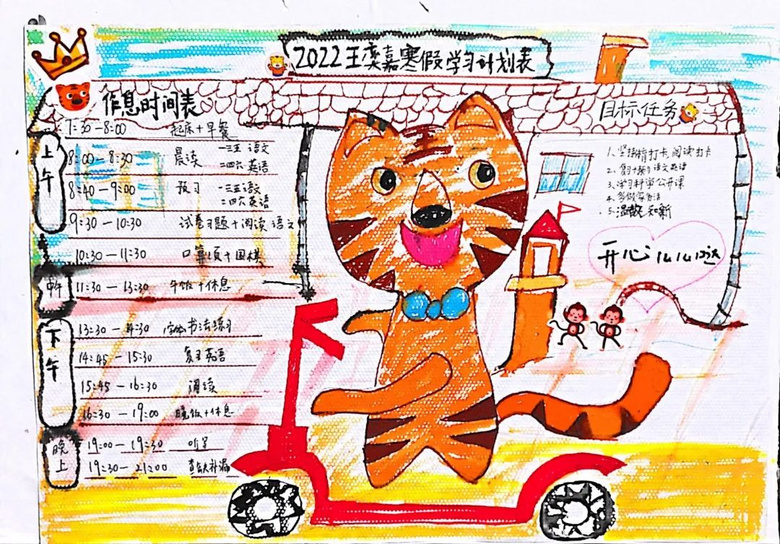 2022王奕嘉寒假学习计划表
作息时间表
目标任务
上午
7:30-8:00 起床+早餐
8:00-8:30 晨读 一三五 语文
二四六 英语
8:40-9:00 预习 一三五 语文
二四六 英语
9:30-10:30 试卷习题+阅读 语文
10:30-11:30 口算+围棋
中午
11:30-13:30 午饭+休息
下午
13:30-14:30 书法练习
14:45-15:30 复习英语
15:45-16:30 阅读
16:30-19:00 晚饭+休息
晚上
19:00-19:30
19:30-21:00 查缺补漏
1. 坚持打卡,阅读打卡
2. 语文英语
3. 学习科学公开课
4.
5. 温故知新
开心